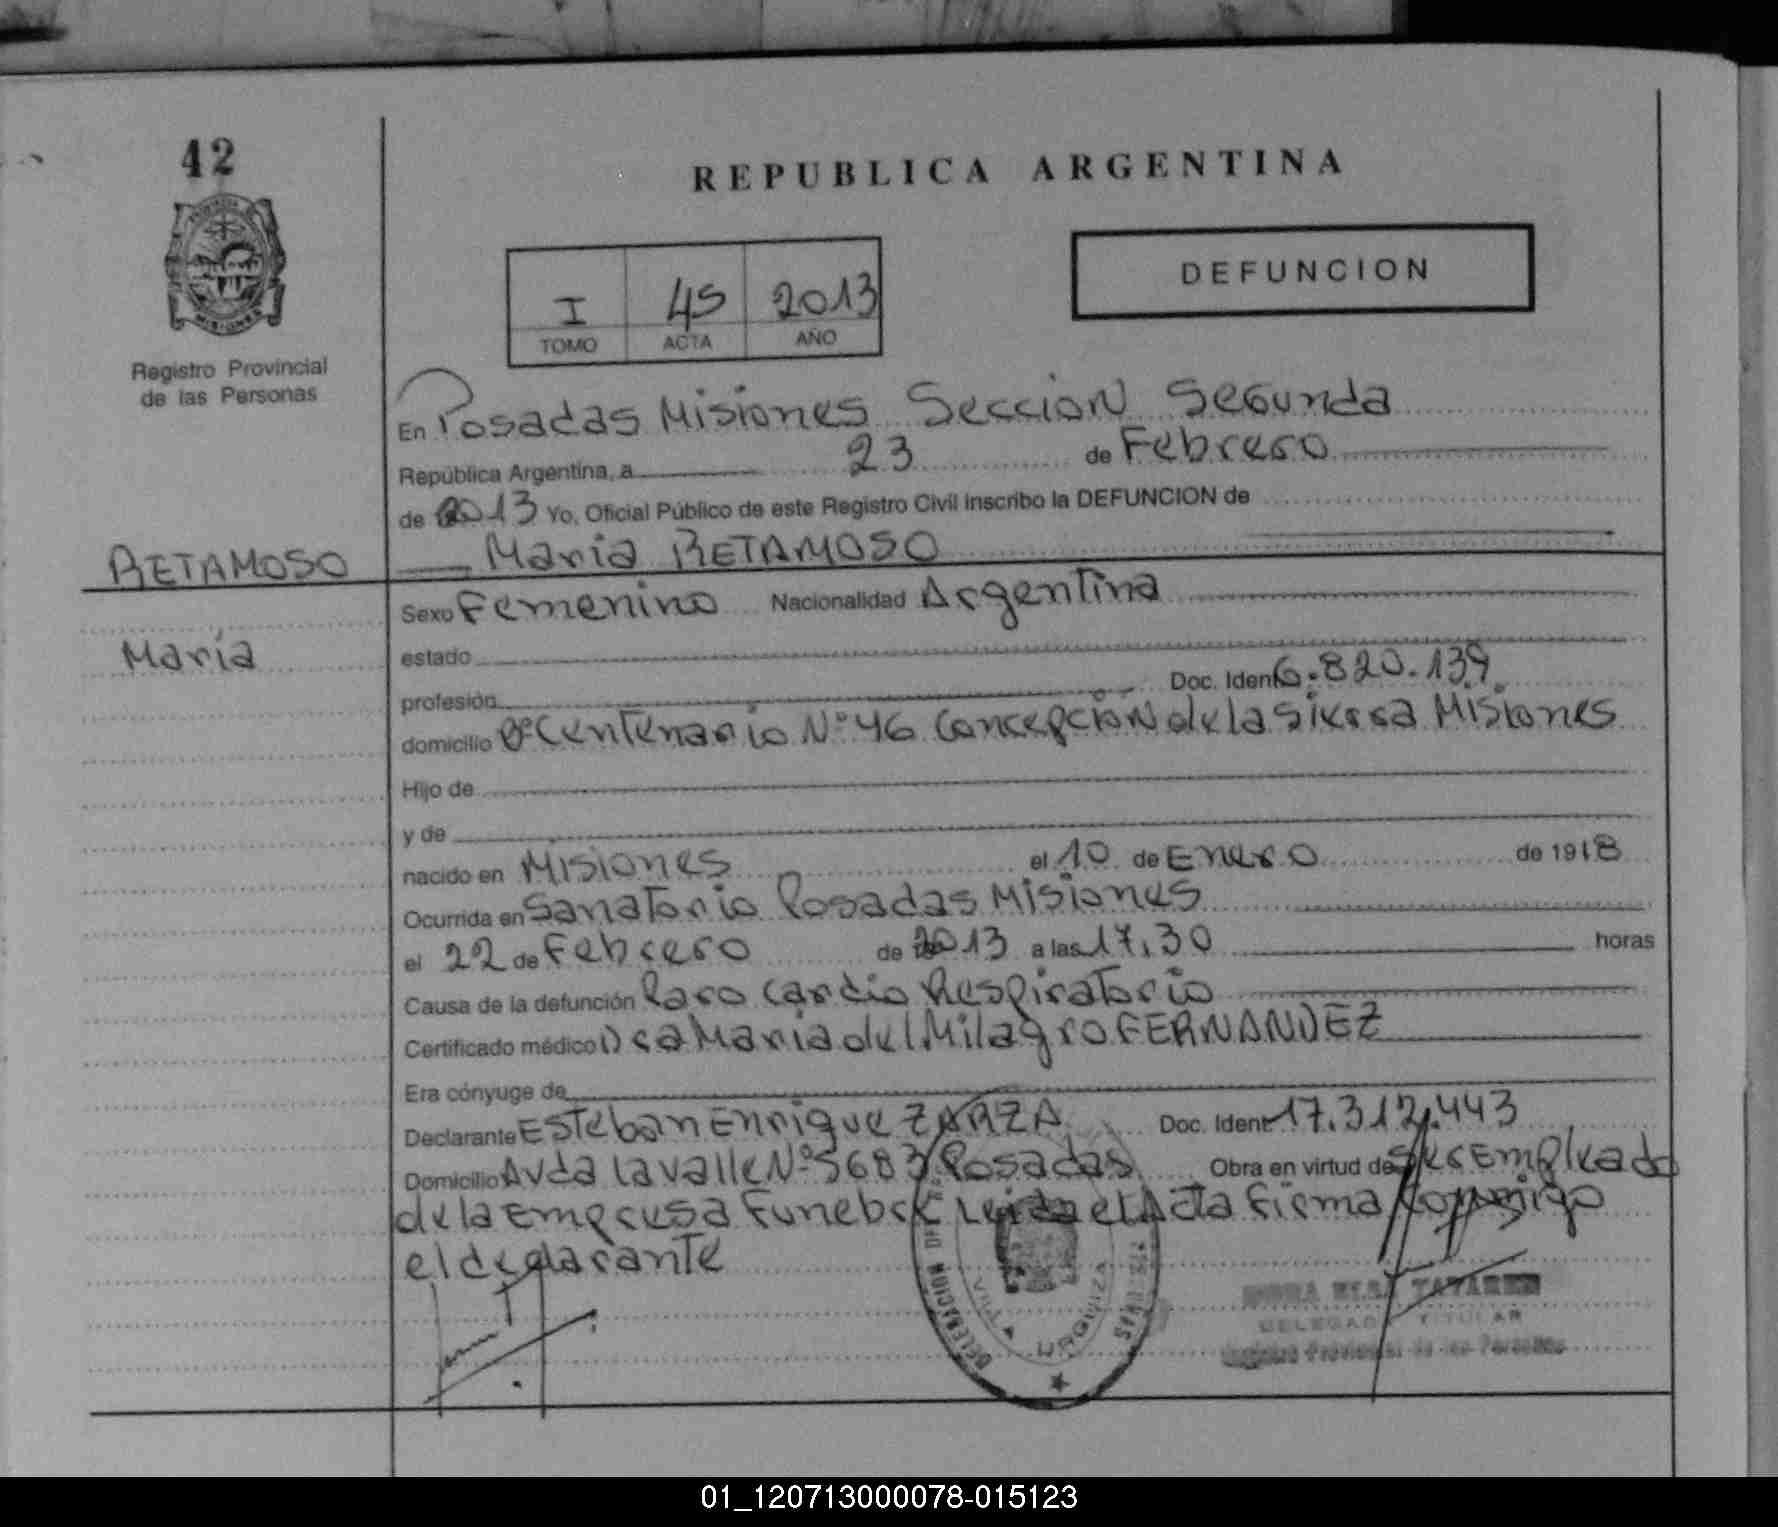 42
REPUBLICA ARGENTINA
DEFUNCION
I 45 2013
TOMO ACTA AÑO
MISIONES
Registro Provincial
de las Personas
En Posadas Misiones Seccion Segunda
República Argentina, a 23 de Febrero
de 2013 Yo, Oficial Público de este Registro Civil inscribo la DEFUNCION de
Maria RETAMOSO
RETAMOSO
María
Sexo Femenino Nacionalidad Argentina
estado
profesión Doc. Ident 6.820.139
domicilio Centenario Nº 46 Concepción de la Sierra Misiones
Hijo de
y de
nacido en Misiones el 10 de Enero de 1918
Ocurrida en Sanatorio Posadas Misiones
el 22 de Febrero de 2013 a las 17,30 horas
Causa de la defunción Paro Cardio Respiratorio
Certificado médico Dra Maria del Milagro FERNANDEZ
Era cónyuge de
Declarante Esteban Enrique ZARZA Doc. Ident 17.312.443
Domicilio Avda Lavalle Nº 5683 Posadas Obra en virtud de Ser Empleado
de la Empresa Funebre Leida el Acta firma conmigo
el declarante
DELEGACION
URQUIZA
TITULAR
Registro Provincial de las Personas
01_120713000078-015123